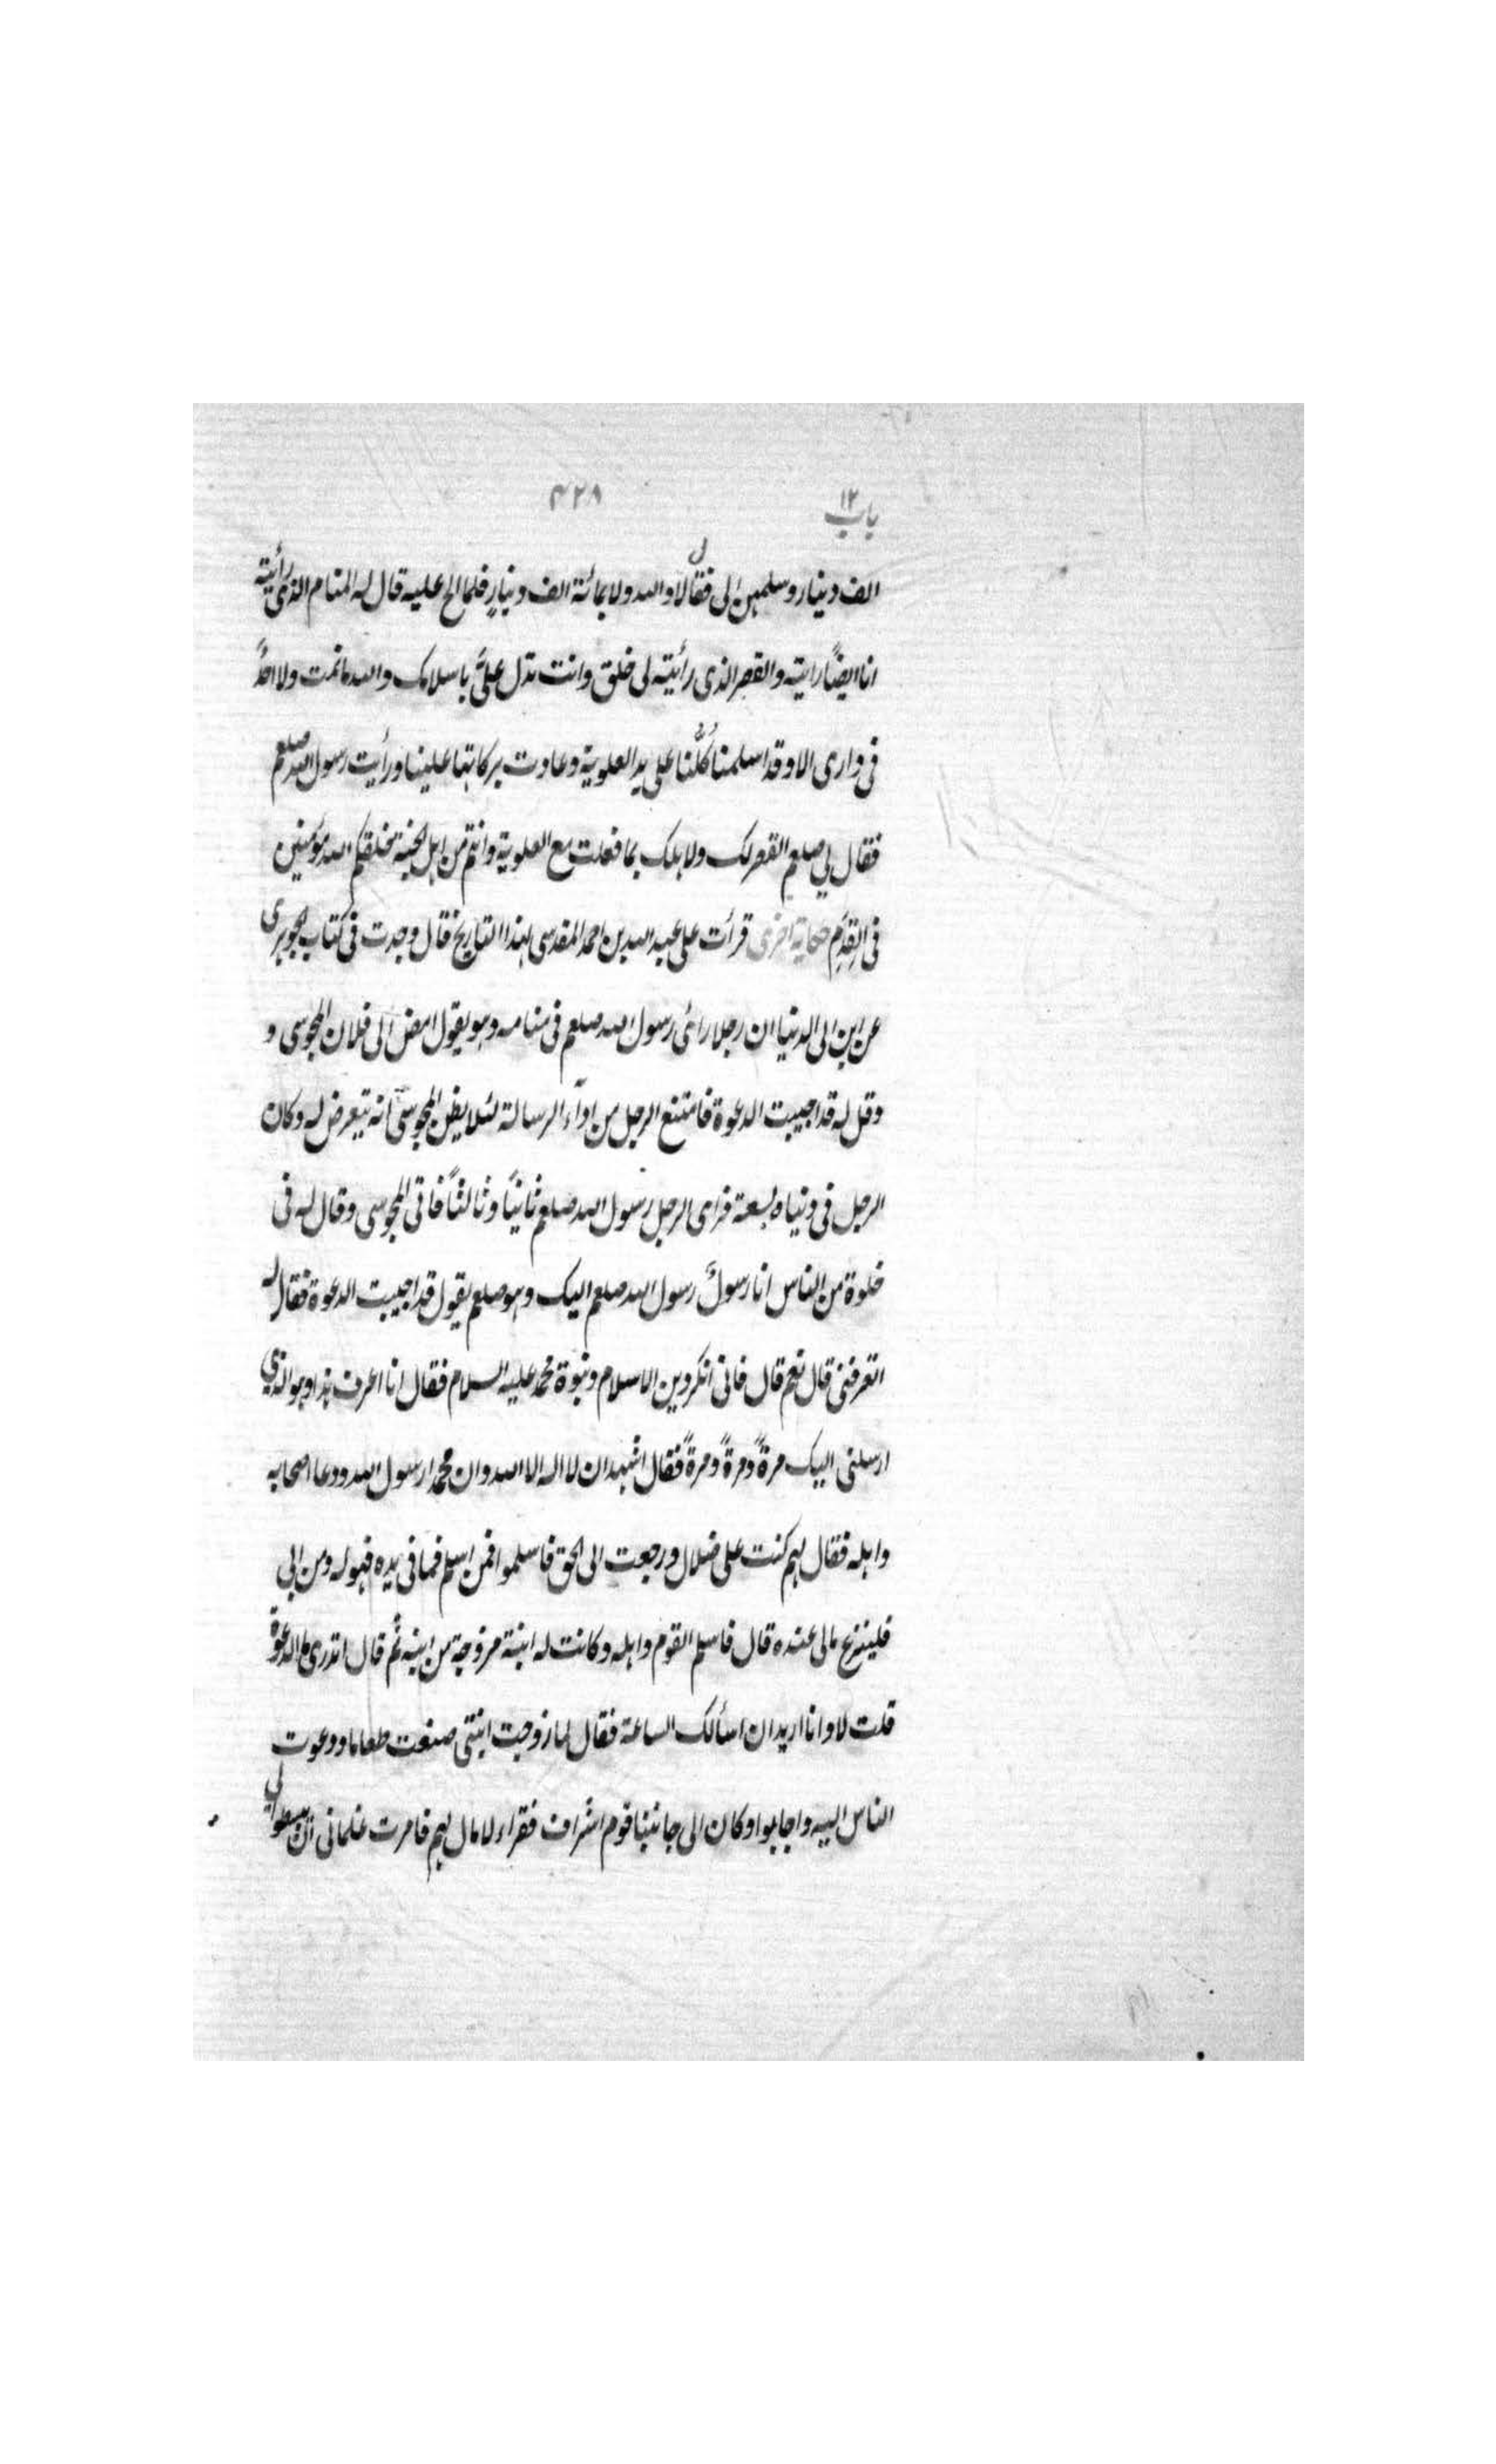 باب ١٢ ٤٢٨
الف دينار وسلمهن الى فقال لا والله ولا بمائة الف دينارٍ فلما الح عليه قال له المنام الذى رأيته
انا ايضاً رايته والقصر الذى رأيته لى خلق وانت تدل علىَّ باسلامك والله ما نمت ولا احدٌ
فى دارى الا وقد اسلمنا كُلُّنا على يد العلوية وعادت بركاتها علينا ورأيت رسول الله صلعم
فقال لي صلعم القصر لك ولاهلك بما فعلت مع العلوية وانتم من اهل الجنة خلقكم الله مؤمنين
فى القِدَم حكاية اخرى قرأت على عبد الله بن احمد المقدسى بهذا التاريخ فقال وجدت فى كتاب الجوهرى
عن ابن ابى الدنيا ان رجلا رأى رسول الله صلعم فى منامه وهو يقول امض الى فلان المجوسى و
وقل له قد اجيبت الدعوة فامتنع الرجل من اداء الرسالة لئلا يظن المجوسى انه يتعرض له وكان
الرجل فى دنياه بسعة فراى الرجل رسول الله صلعم ثانياً وثالثاً فاتى المجوسى وقال له فى
خلوة من الناس انا رسولُ رسول الله صلعم اليك وهو صلعم يقول قد اجيبت الدعوة فقال له
اتعرفنى قال نعم قال فانى انكر دين الاسلام ونبوة محمد عليه السلام فقال انا اعرف هذا وهو الذي
ارسلنى اليك مرةً ومرةً ومرةً فقال اشهد ان لا اله الا الله وان محمدا رسول الله ودعا اصحابه
واهله فقال لهم كنت على ضلال ورجعت الى الحق فاسلموا فمن اسلم فما فى يده فهو له ومن ابى
فلينزع مالى عنده قال فاسلم القوم واهله وكانت له ابنة مزوجة من ابنه ثم قال اتدرى ما الدعوة
قلت لا وانا اريد ان اسألك الساعة فقال لما زوجت ابنتى صنعت طعاما ودعوت
الناس اليه واجابوا وكان الى جانبنا قوم اشراف فقراء لا مال لهم فامرت غلمانى ان يبسطوا لي